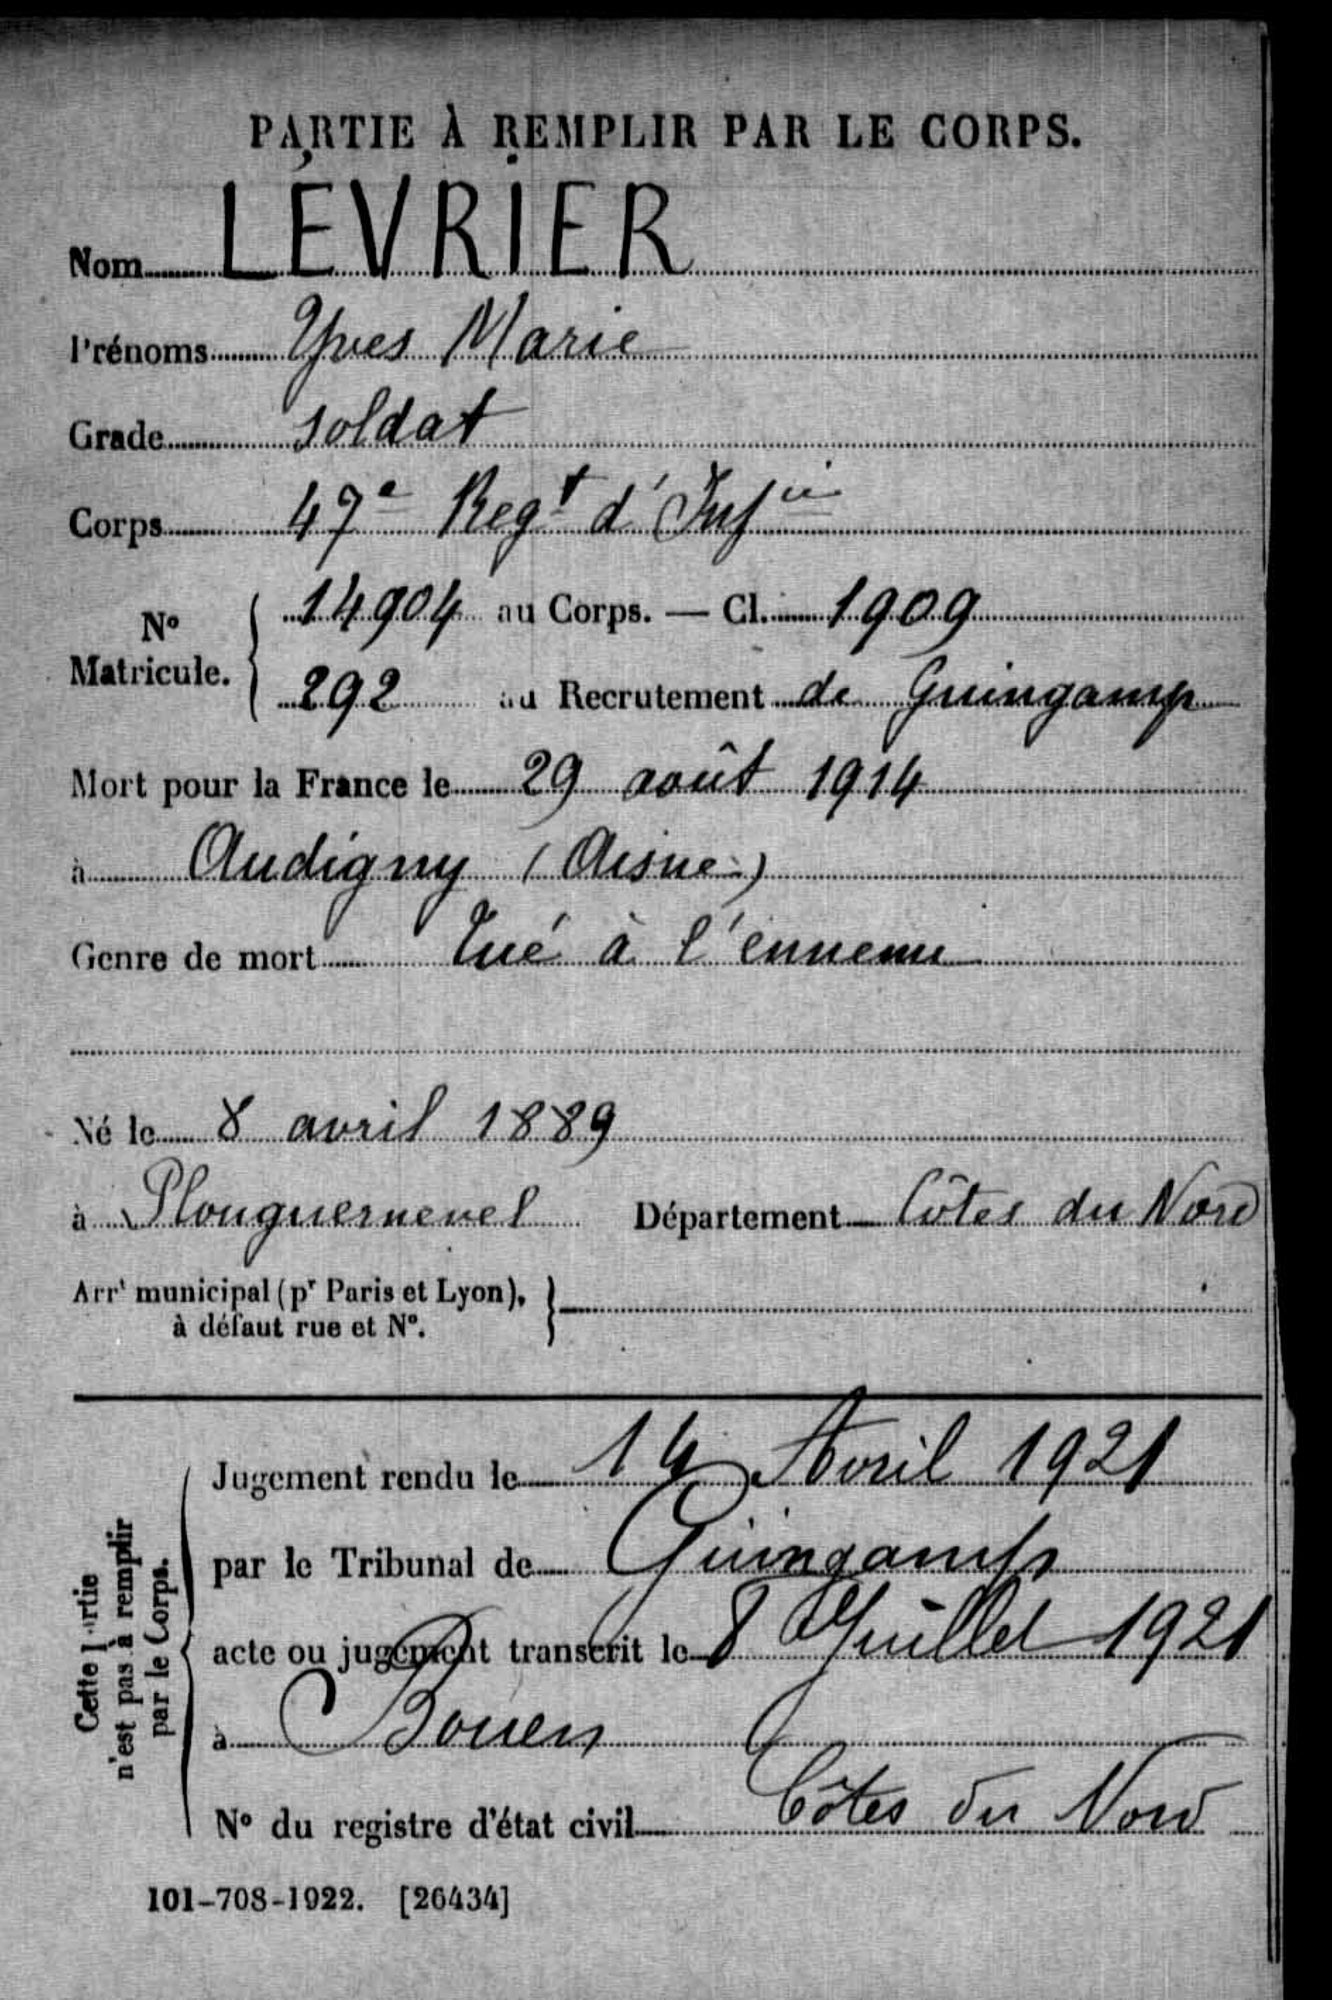 PARTIE À REMPLIR PAR LE CORPS.
Nom LÉVRIER
Prénoms Yves Marie
Grade soldat
Corps 47e Regt d'Infie
No Matricule. { 14904 au Corps. — Cl. 1909
292 au Recrutement de Guingamp
Mort pour la France le 29 août 1914
à Audigny (Aisne)
Genre de mort Tué à l'ennemi
Né le 8 avril 1889
à Plouguernevel Département Côtes du Nord
Arrt municipal (pr Paris et Lyon), }
à défaut rue et N°.
Cette partie
n'est pas à remplir
par le Corps.
Jugement rendu le 14 Avril 1921
par le Tribunal de Guingamp
acte ou jugement transcrit le 8 Juillet 1921
à Bouen
N° du registre d'état civil Côtes du Nord
101-708-1922. [26434]